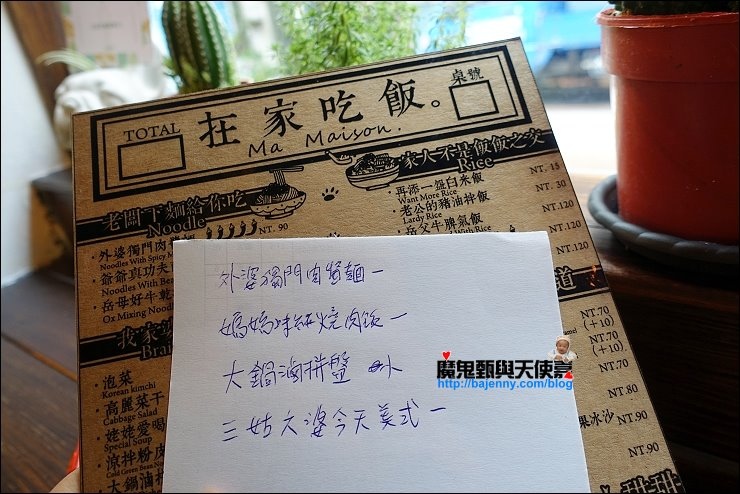 TOTAL
在家吃飯。
Ma Maison.
桌號
老闆下麵給你吃
Noodle
外婆獨門肉
Noodles With Spicy M
NT. 90
爺爺真功夫
Noodles With Bea
岳母好牛
Ox Mixing Noodle
我家
Brai
泡菜
Korean kimchi
高麗菜干
Cabbage Salad
姥姥愛喝
Special Soup
涼拌粉皮
Cold Green Bean Noo
大鍋滷拼
家人不是飯飯之交
Rice
再添一盤白米飯
Want More Rice
NT. 15
老公的豬油拌飯
Lardy Rice
NT. 30
岳父牛脾氣飯
With Rice
NT.120
NT.120
NT.120
道
NT.70
(+10)
NT.70
(+10)
NT.70
NT.80
果冰沙
NT.90
NT.90
甜甜
外婆獨門肉醬麵 一
媽媽味 燒肉飯 一
大鍋滷拼盤 小
三姑六婆今天美式 一
魔鬼甄與天使嘉
http://bajenny.com/blog